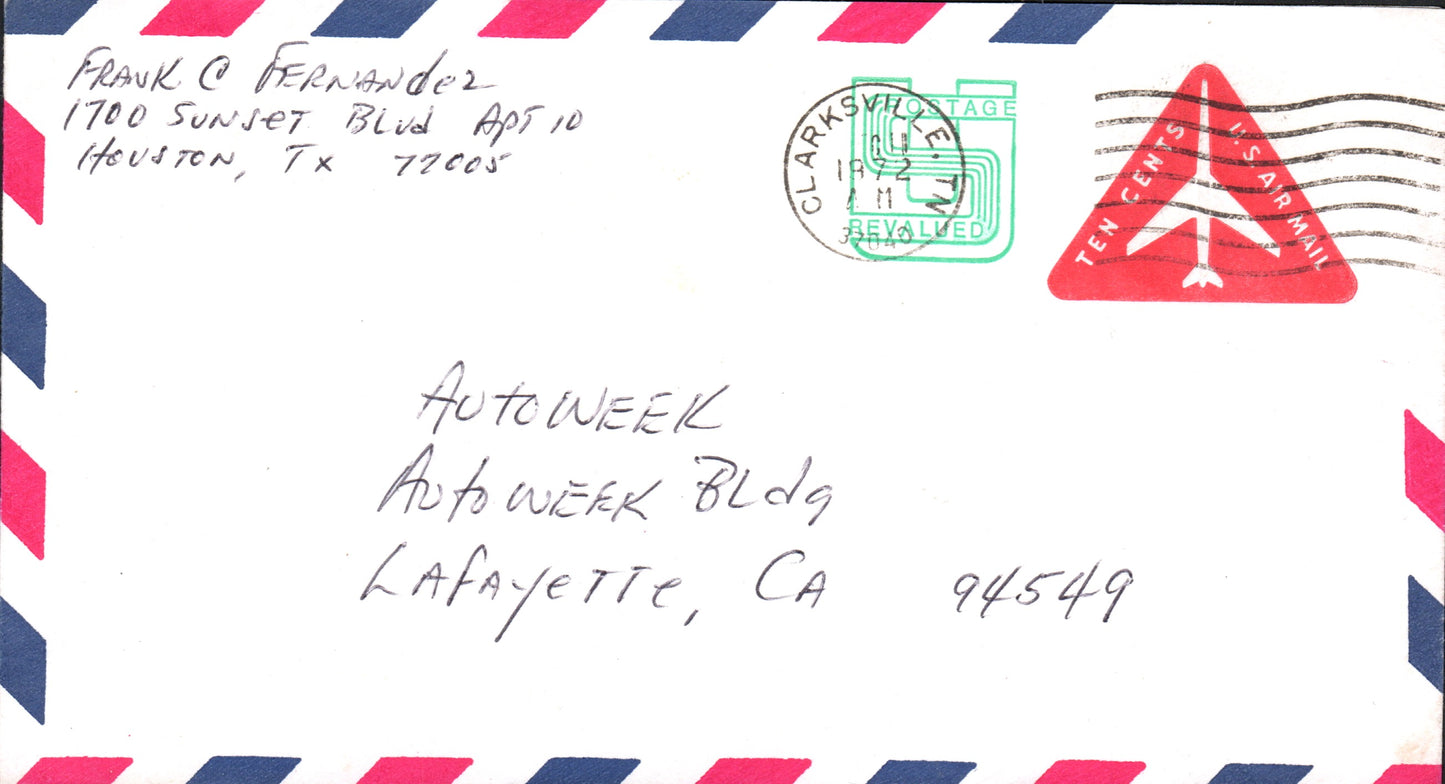 FRANK C FERNANdez
1700 SUNSeT BLvd APT 10
HOUSTON, TX 77005
POSTAGE
REVALUED
CLARKSVILLE. TN
1972
AM
37040
TEN CENTS
U.S. AIR MAIL
AUTOWEEK
AutoWEEK BLdg
LAfAyeTTe, CA 94549